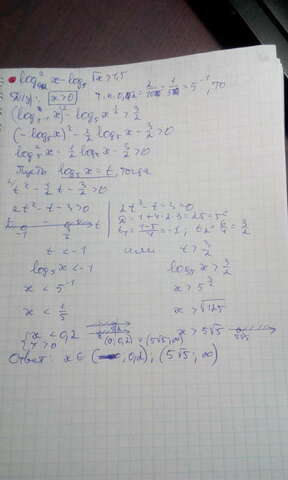 log²₀,₂ x - log₅ √x > 1,5
x > 0 т. к. 0,2 = 2/10 = 1/5 = 5⁻¹, то
(log₅⁻¹ x)² - log₅ x^½ > 3/2
(-log₅x)² - ½ log₅x - 3/2 > 0
log₅²x - ½ log₅x - 3/2 > 0
Пусть log₅x = t, тогда
t² - ½ t - 3/2 > 0
2t² - t - 3 > 0 2t² - t - 3 = 0
D = 1 + 4·2·3 = 25 = 5²
t₁ = (1-5)/4 = -1; t₂ = 6/4 = 3/2
-1 3/2 t
t < -1 или t > 3/2
log₅x < -1 log₅x > 3/2
x < 5⁻¹ x > 5^(3/2)
x < 1/5 x > √125
{x < 0,2 x > 5√5
x > 0 (0; 0,2) (5√5; ∞)
Ответ: x ∈ ( , 0,2); (5√5; ∞)